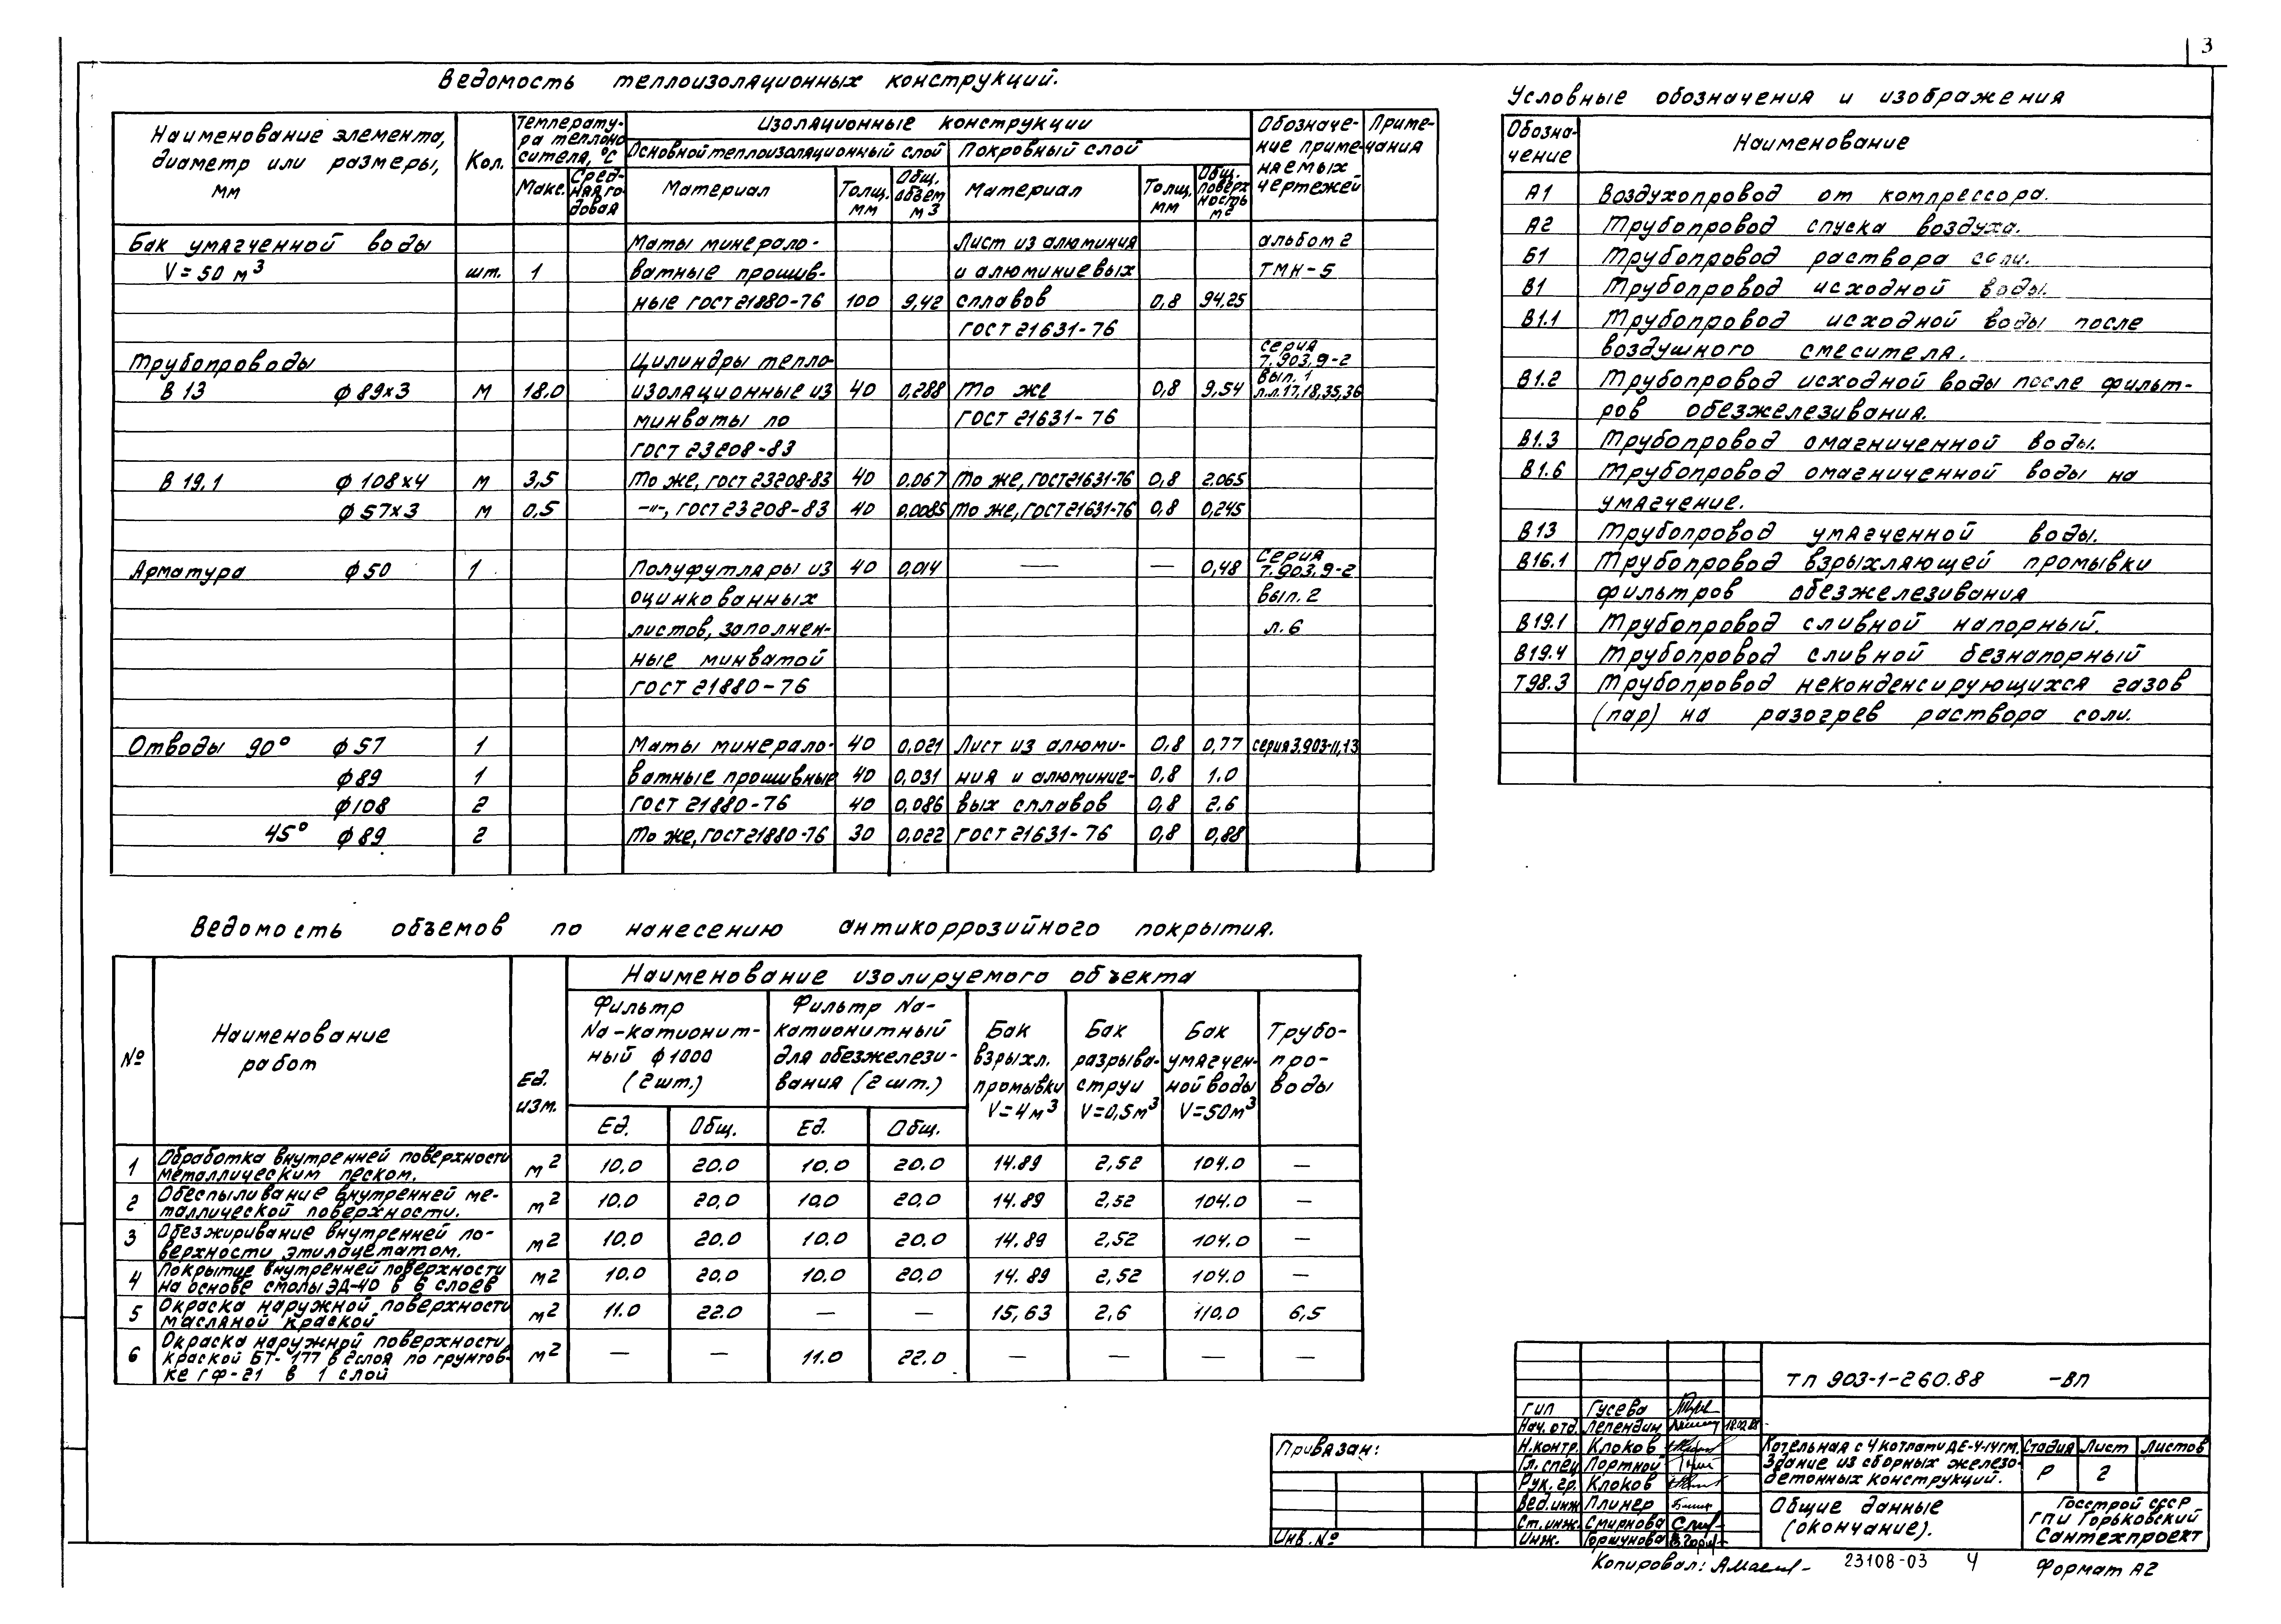 3
Ведомость теплоизоляционных конструкций.
Наименование элемента, диаметр или размеры, мм
Кол.
Температура теплоносителя, °С
Макс.
Среднягодовая
Изоляционные конструкции
Основной теплоизоляционный слой
Покровный слой
Материал
Толщ. мм
Общ. объем м3
Материал
Толщ. мм
Общ. поверхность м2
Обозначение применяемых чертежей
Примечания
Бак умягченной воды Маты минерало- Лист из алюминия альбом 2
V = 50 м3 шт. 1 ватные прошив- и алюминиевых ТМН-5
ные ГОСТ 21880-76 100 9,42 сплавов 0,8 94,25
ГОСТ 21631-76
Трубопроводы Цилиндры тепло- серия 7.903.9-2
В 13 ф 89х3 м 18.0 изоляционные из 40 0,288 То же 0,8 9,54 вып. 1 л.л.17,18,35,36
минваты по ГОСТ 21631-76
ГОСТ 23208-83
В 19.1 ф 108х4 м 3,5 То же, ГОСТ 23208-83 40 0,067 То же, ГОСТ 21631-76 0,8 2.065
ф 57х3 м 0,5 -"-, ГОСТ 23208-83 40 0,0085 То же, ГОСТ 21631-76 0,8 0,245
Арматура ф 50 1 Полуфутляры из 40 0,014 — — 0,48 Серия 7.903.9-2
оцинкованных вып. 2
листов, заполнен- л. 6
ные минватой
ГОСТ 21880-76
Отводы 90° ф 57 1 Маты минерало- 40 0,021 Лист из алюми- 0,8 0,77 серия 3.903-11,13
ф 89 1 ватные прошивные 40 0,031 ния и алюминие- 0,8 1.0
ф 108 2 ГОСТ 21880-76 40 0,086 вых сплавов 0,8 2.6
45° ф 89 2 То же, ГОСТ 21880-76 30 0,022 ГОСТ 21631-76 0,8 0,88
Условные обозначения и изображения
Обозна-чение Наименование
А1 Воздухопровод от компрессора.
А2 Трубопровод спуска воздуха.
Б1 Трубопровод раствора соли.
В1 Трубопровод исходной воды.
В1.1 Трубопровод исходной воды после
воздушного смесителя.
В1.2 Трубопровод исходной воды после фильт-
ров обезжелезивания.
В1.3 Трубопровод омагниченной воды.
В1.6 Трубопровод омагниченной воды на
умягчение.
В13 Трубопровод умягченной воды.
В16.1 Трубопровод взрыхляющей промывки
фильтров обезжелезивания
В19.1 Трубопровод сливной напорный.
В19.4 Трубопровод сливной безнапорный
Т98.3 Трубопровод неконденсирующихся газов
(пар) на разогрев раствора соли.
Ведомость объемов по нанесению антикоррозийного покрытия.
№
Наименование работ
Ед. изм.
Наименование изолируемого объекта
Фильтр Na-катионит-ный ф 1000 (2 шт.)
Фильтр Na-катионитный для обезжелези-вания (2 шт.)
Бак взрыхл. промывки V=4м3
Бак разрыва струи V=0,5м3
Бак умягчен-ной воды V=50м3
Трубо-про-воды
Ед. Общ. Ед. Общ.
1 Обработка внутренней поверхности м2 10,0 20.0 10,0 20.0 14.89 2,52 104.0 —
металлическим песком.
2 Обеспыливание внутренней ме- м2 10.0 20,0 10.0 20,0 14.89 2,52 104.0 —
таллической поверхности.
3 Обезжиривание внутренней по- м2 10.0 20.0 10.0 20.0 14.89 2,52 104.0 —
верхности этилацетатом.
4 Покрытие внутренней поверхности м2 10.0 20.0 10.0 20,0 14.89 2,52 104.0 —
на основе смолы ЭД-40 в 6 слоев
5 Окраска наружной поверхности м2 11.0 22.0 — — 15,63 2,6 110,0 6,5
масляной краской
6 Окраска наружной поверхности м2 — — 11.0 22.0 — — — —
краской БТ-177 в 2 слоя по грунтов-
ке ГФ-21 в 1 слой
Привязан:
Инв. №
ГИП Гусева
Нач. отд. Лепендин 18.02.88
Н.контр. Клоков
Гл. спец Портной
Рук. гр. Клоков
Вед.инж Плинер
Ст. инж. Смирнова
Инж. Горшунова
ТП 903-1-260.88 -ВП
Котельная с 4 котлами ДЕ-4-14ГМ.
Здание из сборных железо-
бетонных конструкций.
Стадия Лист Листов
Р 2
Общие данные
(окончание).
Госстрой СССР
ГПИ Горьковский
Сантехпроект
Копировал:
23108-03 4
Формат А2